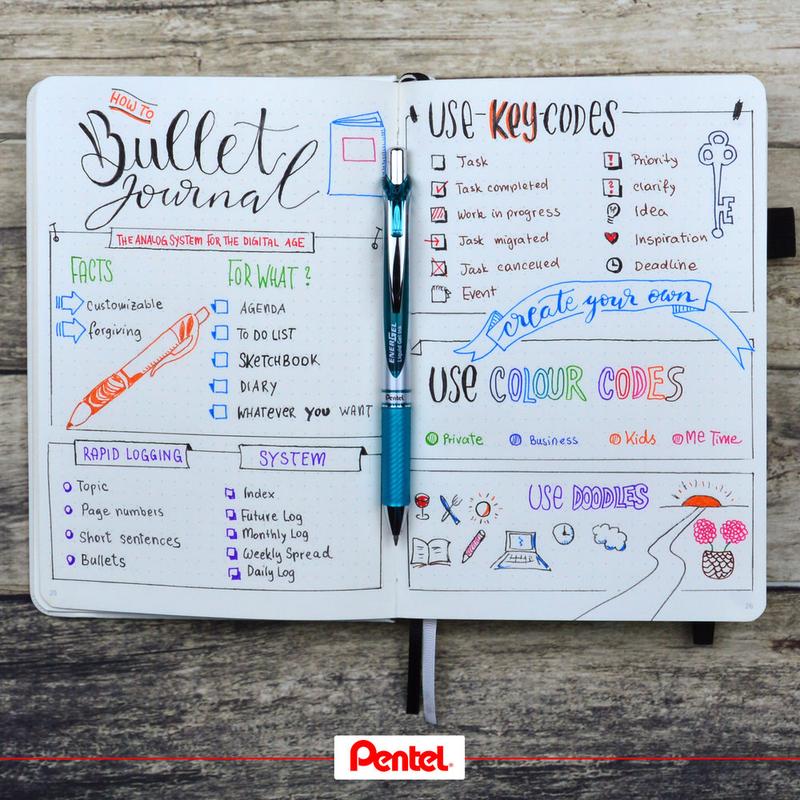 HOW TO
Bullet
Journal
THE ANALOG SYSTEM FOR THE DIGITAL AGE
FACTS
Customizable
forgiving
FOR WHAT?
AGENDA
TO DO LIST
SKETCHBOOK
DIARY
WHATEVER YOU WANT
RAPID LOGGING
Topic
Page numbers
Short sentences
Bullets
SYSTEM
Index
Future Log
Monthly Log
Weekly Spread
Daily Log
25
ENERGEL
Liquid Gel Ink
Pentel
USE-KEY-CODES
Task
Task completed
Work in progress
Task migrated
Task cancelled
Event
! Priority
? clarify
Idea
Inspiration
Deadline
create your own
USE COLOUR CODES
Private
Business
Kids
Me Time
USE DOODLES
26
Pentel